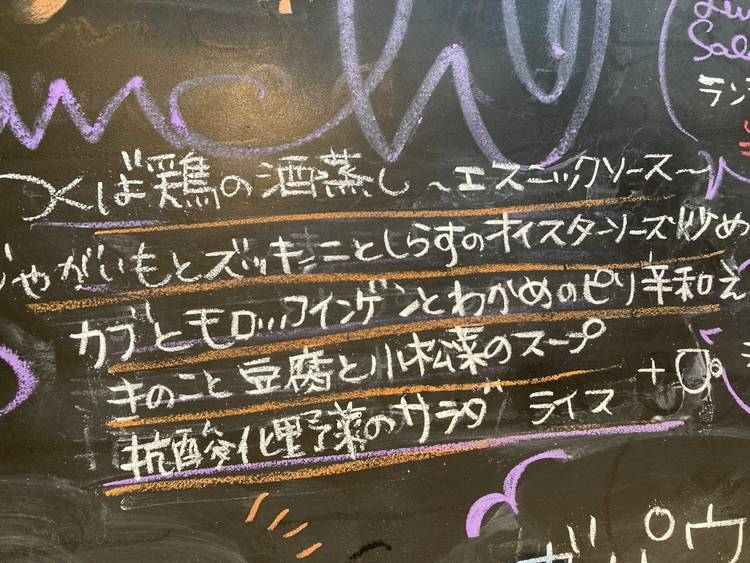 Lunch
つくば鶏の酒蒸し ～エスニックソース～
じゃがいもとズッキーニとしらすのオイスターソース炒め
カブとモロッコインゲンとわかめのピリ辛和え
きのこと豆腐と小松菜のスープ
抗酸化野菜のサラダ ライス